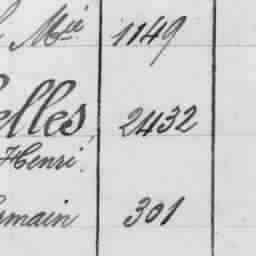 Mie 1149
elles, 2432
Henri.
rmain 301